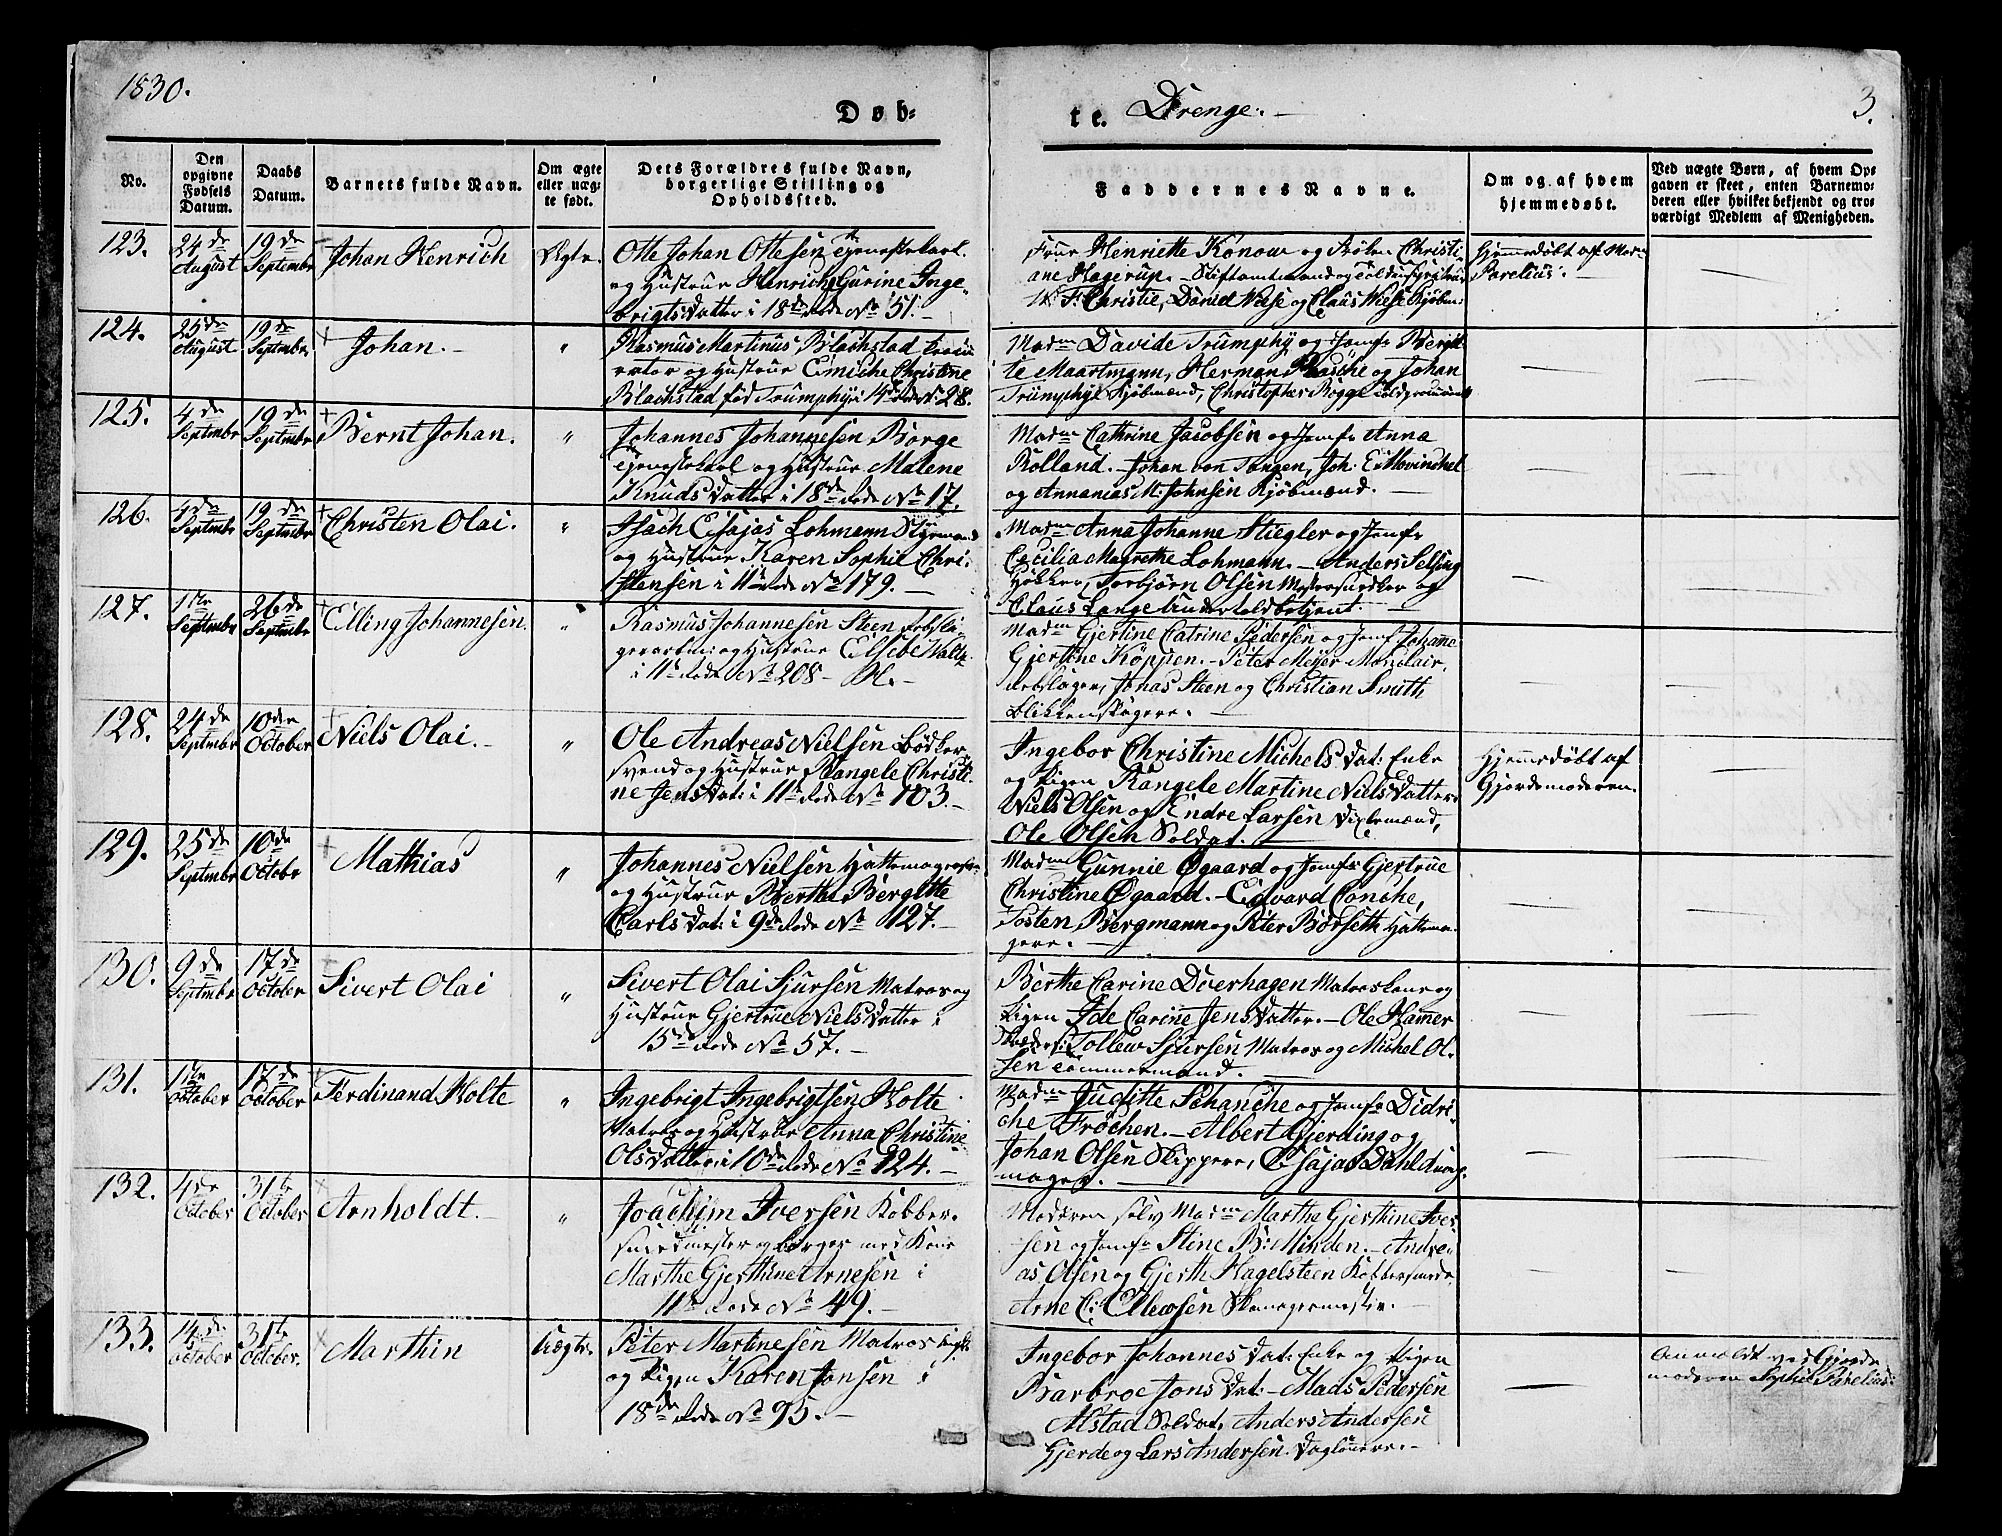 1830.
Døb-
te. Drenge. 3.
No.
Den opgivne Fødsels Datum.
Daabs Datum.
Barnets fulde Navn.
Om ægte eller uæg-te født.
Dets Forældres fulde Navn, borgerlige Stilling og Opholdssted.
Faddernes Navne.
Om og af hvem hjemmedøbt.
Ved uægte Børn, af hvem Op-gaven er skeet, enten Barnemo-deren eller hvilket bekjendt og tro-værdigt Medlem af Menigheden.
123. 24de August 19de Septembr Johan Henrich Ægte.
Otte Johan Ottesen Tjenestekarl
og Hustrue Henriche Gurine Inge-
brigtsdatter i 18de Rode No 51.
Frue Henriette Konow og Frøken Christi-
ane Hagerup. Stiftamtmand og
Christie, David Wiese og Claus Wiese Kjøbm:
Hjemmedøbt af Mad:
Parelius.
124. 25de August 19de Septembr Johan. "
Rasmus Martinus Blachstad
og Hustrue Emiche Christine
Blachstad fød Trumphy i 14de Rode No 28.
Madm Davide Trumphy og Jomfr Berget-
te Maartmann, Herman Rasche og Johan
Trumphy Kjøbmænd, Christopher Rogge
125. 4de Septembr 19de Septembr Bernt Johan. "
Johannes Johannesen Borge
Tjenestekarl og Hustrue Malene
Knudsdatter i 18de Rode No 17.
Madm Cathrine Jacobsen og Jomfr Anna
Rolland. Johan von Tangen, Joh: E: Mowinchel
og Annanias M: Johnsen Kjøbmænd.
126. 4de Septembr 19de Septembr Christen Olai. "
Isach Esajas Lohmann Styrmand
og Hustrue Karen Sophie Chri-
stensen i 11te Rode No 179.
Madm Anna Johanne Stiegler og Jomfr
Cecilia Magrethe Lohmann. Anders Selsing
Høkker, Torbjørn Olsen Mestersnedker og
Claus Lange Undertoldbetjent.
127. 1te Septembr 26de Septembr Elling Johannesen. "
Rasmus Johannesen Steen Rebslа-
gerarbm: og Hustrue Elsebe Waltz
i 11te Rode No 208
Madm Gjertine Catrine Pedersen og Jomfr Johanne
Gjertine Köppen. Peter Meyer Monclair
Rebslager, Jonas Steen og Christian Smith
Blikkenslagere.
128. 24de Septembr 10de October Niels Olai. "
Ole Andreas Nielsen Bødker-
svend og Hustrue Rangele Christi-
ne Jensdat: i 11te Rode No 103.
Ingebor Christine Michelsdat: Enke
og Pigen Rangele Martine Nielsdatter
Niels Olsen og Endre Larsen
Ole Olsen Soldat.
Hjemmedøbt af
Gjordemoderen.
129. 25de Septembr 10de Octobr Mathias "
Johannes Nielsen Hattemagersv:
og Hustrue Berthe Bergitte
Carlsdat: i 9de Rode No 127.
Madm Gunnie Øgaard og Jomfr Gjertrue
Christine Øgaard. Edvard Conche,
Tosten Bergmann og Peter Børseth Hattema-
gere.
130. 9de Septembr 17de October Sivert Olai "
Sivert Olai Sjursen Matros og
Hustrue Gjertrue Nielsdatter i
15de Rode No 57.
Berthe Carine Duerhagen Matroskone og
Pigen Ide Carine Jensdatter. Ole Hamer
Tollew Sjursen Matros og Michel Ol-
sen Tømmermand.
131. 1te October 17de October Ferdinand Holte "
Ingebrigt Ingebrigtsen Holte
Matros og Hustrue Anna Christine
Olsdatter i 10de Rode No 124.
Madm Juditte Schanche og Jomfr Didri-
che Frøchen. Albert Gjerding og
Johan Olsen Skippere, Esajas Dahl
mager.
132. 4de October 31te October Arnholdt "
Joachim Iversen Kobber-
smedmester og Borger med Kone
Marthe Gjerthine Arnesen i
11te Rode No 49.
Moderen selv Madm Marthe Gjerthine Iver-
sen og Jomfr Stine B: Minden. Andre-
as Olsen og Gjerth Hagelsteen Kobbersmede
Arne C: Ellewsen Skomagermester.
133. 14de October 31te October. Marthin Uægte.
Peter Martinesen Matros
og Pigen Karen Jonsen i
18de Rode No 95.
Ingebor Johannesdat: Enke og Pigen
Barbroe Jonsdat: Mads Pedersen
Alstad Soldat, Anders Andersen
Gjerde og Lars Andersen Daglønnere.
Anmeldt ved Gjorde-
moderen Sophie Parelius.